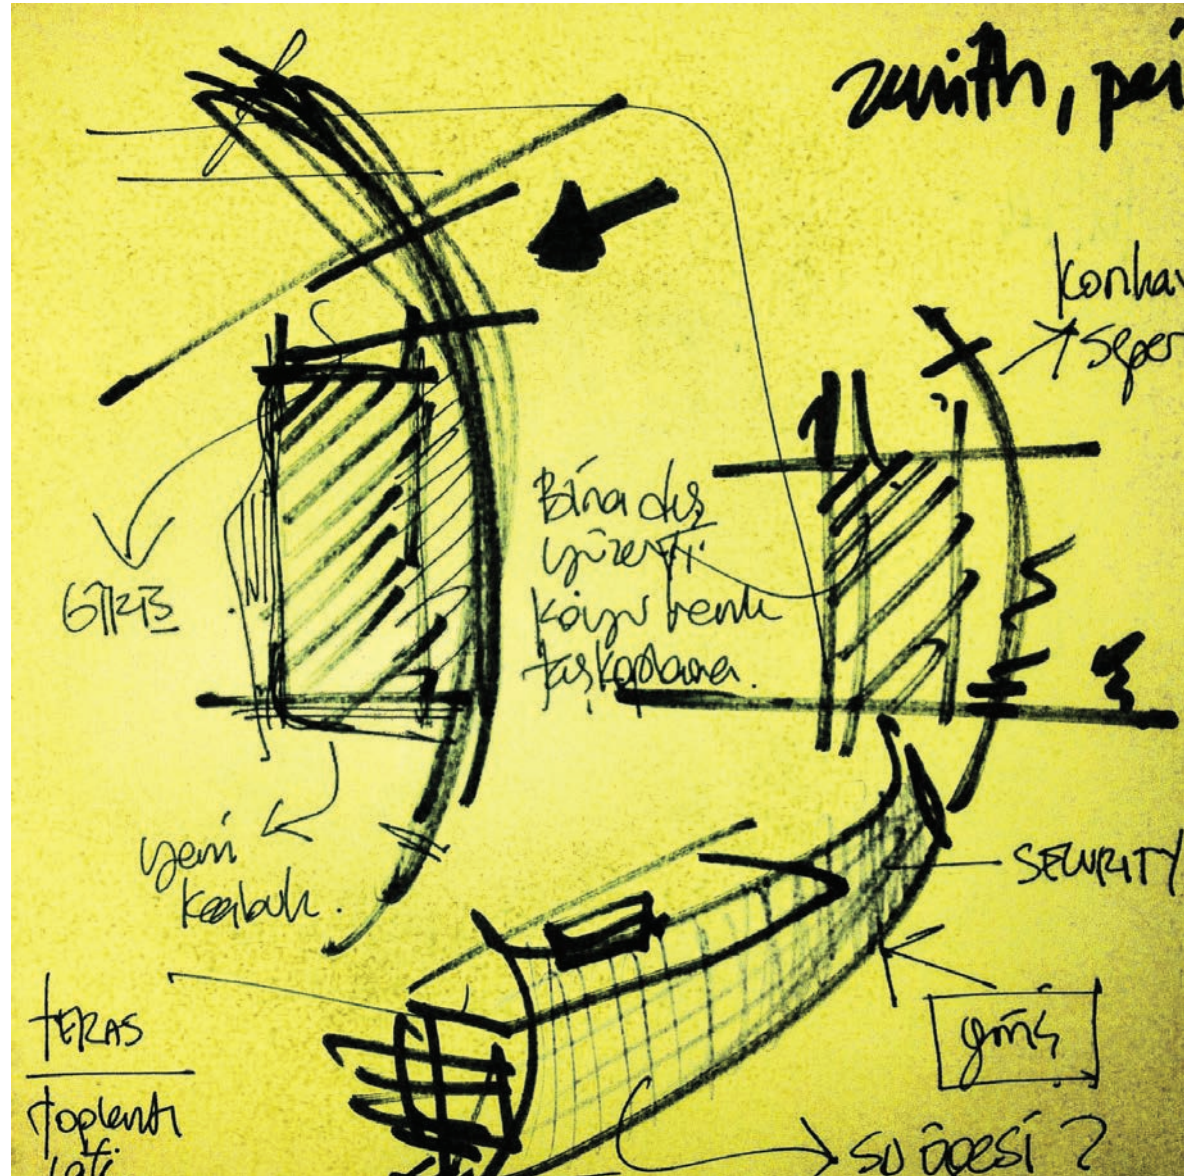 zenith, pei
Konkav
seper
Bina dış
yüzeyi:
koyu renk
taş kaplama.
GİRİŞ
yeni
kabuk.
SECURITY
giriş
TERAS
toplantı
katı
SU ÖĞESİ ?